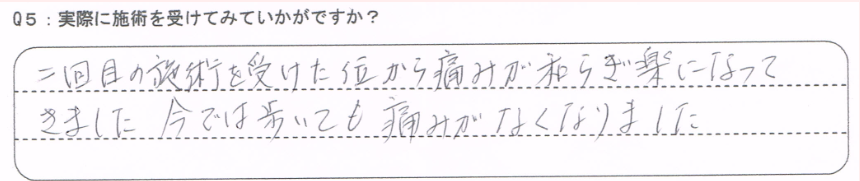 Q5：実際に施術を受けてみていかがですか？
二回目の施術を受けた位から痛みが和らぎ楽になって
きました 今では歩いても痛みがなくなりました